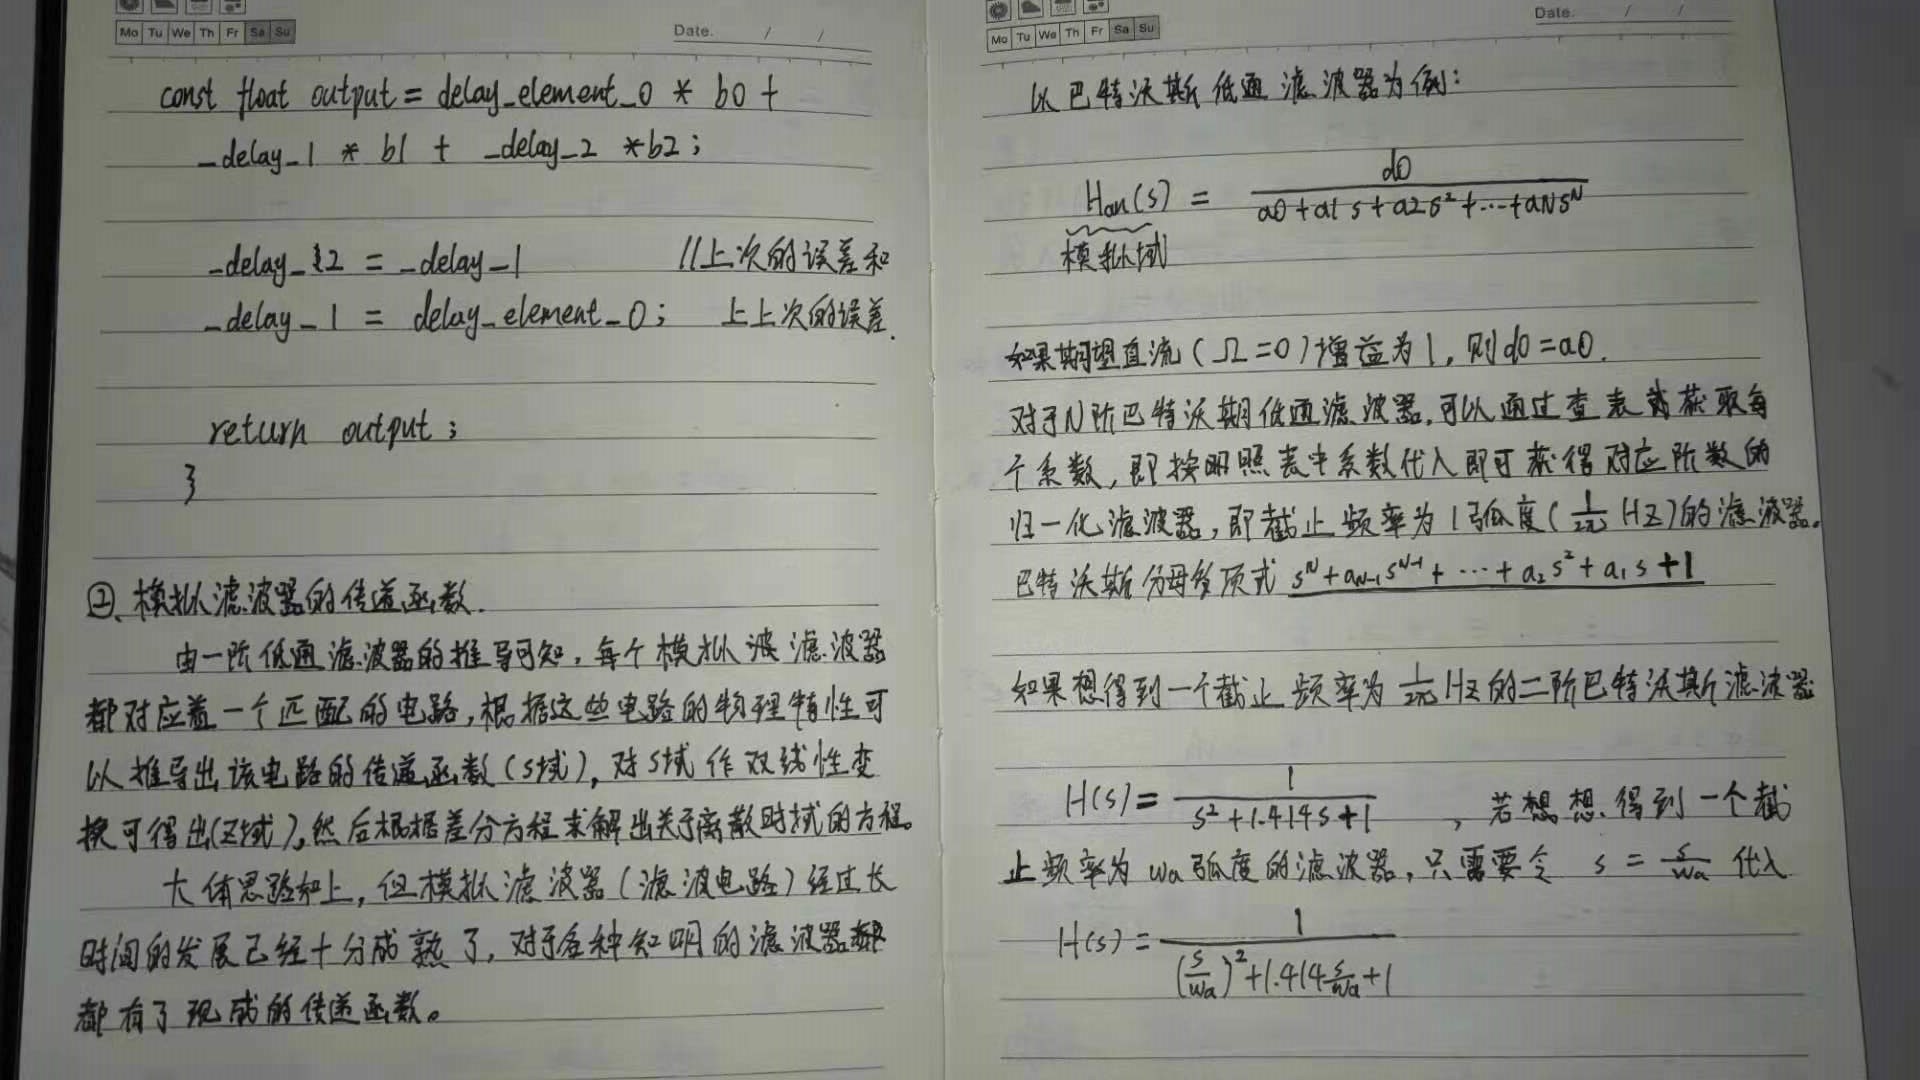 Mo Tu We Th Fr Sa Su
Date. / /
const float output = delay_element_0 * b0 +
_delay_1 * b1 + _delay_2 * b2;
_delay_2 = _delay_1 //上次的误差和
_delay_1 = delay_element_0; 上上次的误差.
return output;
}
②、模拟滤波器的传递函数.
由一阶低通滤波器的推导可知,每个模拟波滤波器
都对应着一个匹配的电路,根据这些电路的物理特性可
以推导出该电路的传递函数(s域),对s域作双线性变
换可得出(z域),然后根据差分方程求解出关于离散时域的方程。
大体思路如上,但模拟滤波器(滤波电路)经过长
时间的发展已经十分成熟了,对于各种知明的滤波器
都有了现成的传递函数。
Mo Tu We Th Fr Sa Su
Date. / /
以巴特沃斯低通滤波器为例:
Han(s) = d0 / (a0+a1 s+a2s²+…+aNs^N)
模拟域
如果期望直流(Ω=0)增益为1,则d0=a0.
对于N阶巴特沃期低通滤波器,可以通过查表获取每
个系数,即按照表中系数代入即可获得对应阶数的
归一化滤波器,即截止频率为1弧度(1/2π Hz)的滤波器。
巴特沃斯分母多项式 s^N+a_{N-1}s^{N-1}+…+a₂s²+a₁s+1
如果想得到一个截止频率为 1/2π Hz的二阶巴特沃斯滤波器
H(s)= 1 / (s²+1.414s+1) ,若想想得到一个截
止频率为wa弧度的滤波器,只需要令 s = s/wa 代入
H(s)= 1 / ((s/wa)²+1.414 s/wa+1)